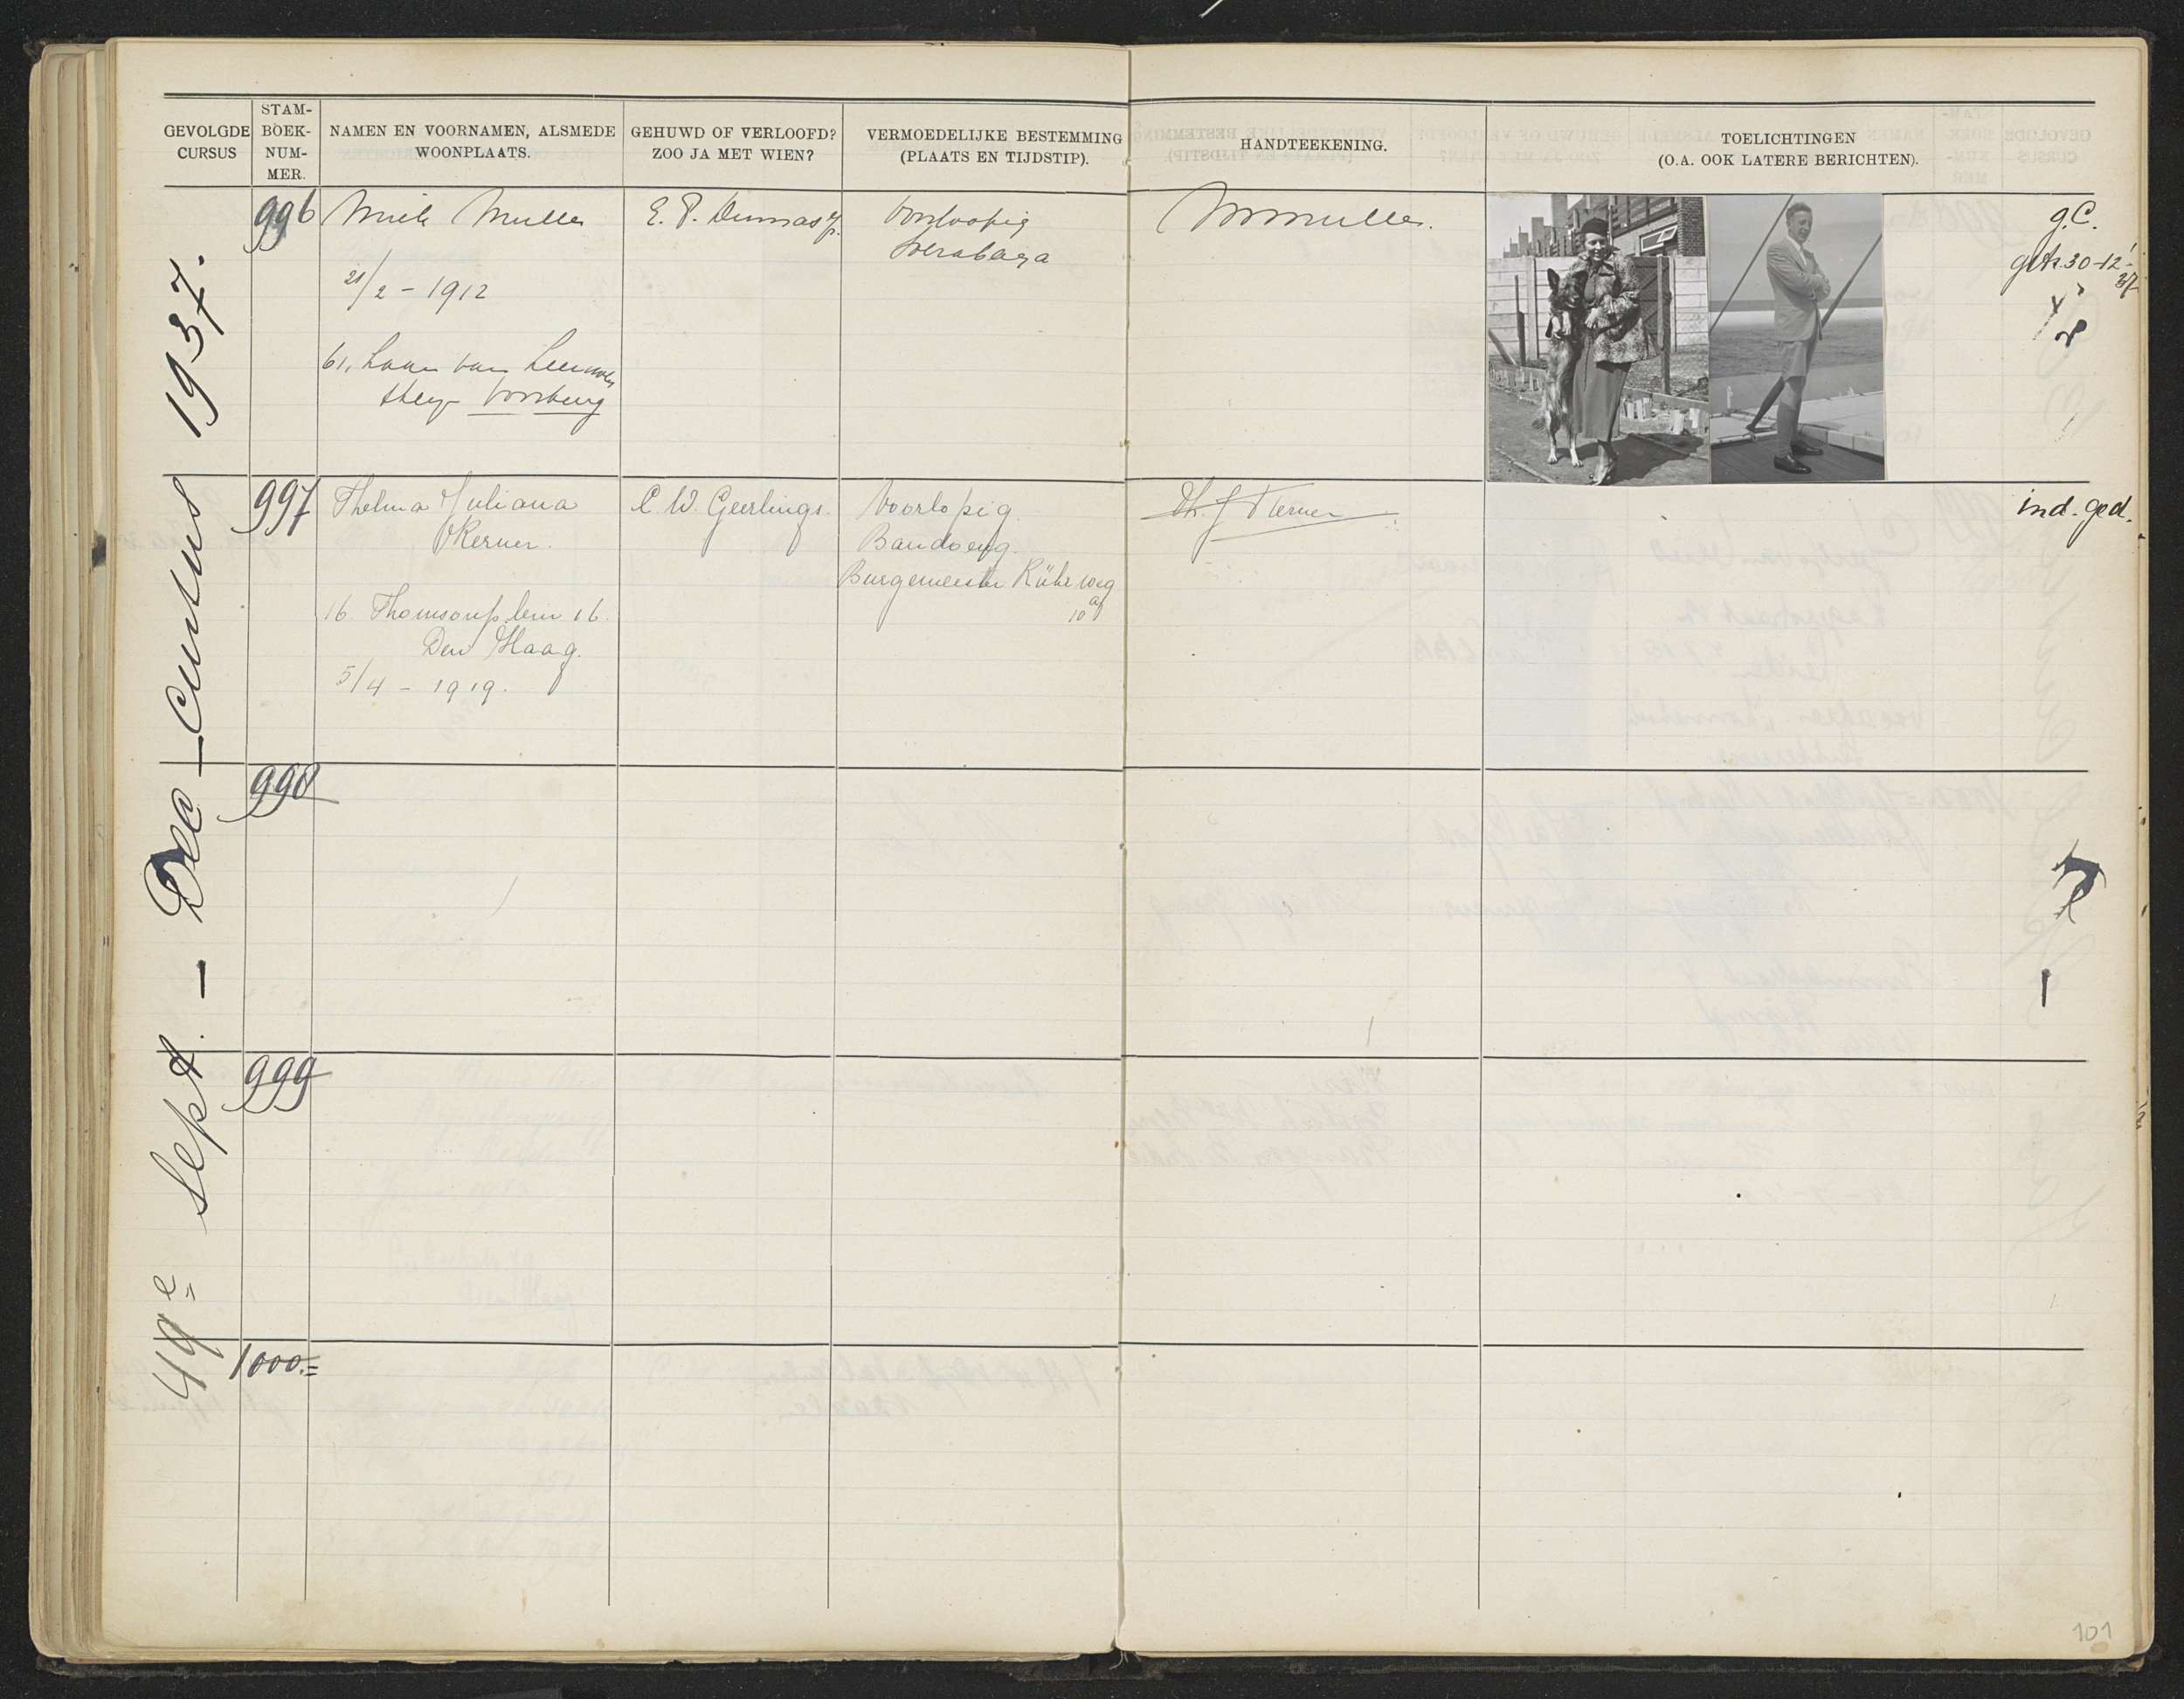 GEVOLGDE CURSUS
STAM-BOEK-NUM-MER.
NAMEN EN VOORNAMEN, ALSMEDE WOONPLAATS.
GEHUWD OF VERLOOFD? ZOO JA MET WIEN?
VERMOEDELIJKE BESTEMMING (PLAATS EN TIJDSTIP).
HANDTEEKENING.
TOELICHTINGEN (O.A. OOK LATERE BERICHTEN).
49e Sept. - Dec - Cursus 1937.
996
Muller
21/2 - 1912
61, Laan van
Voorburg
E. P. Dumas
Voorloopig
Soerabaja
Muller.
g.C.
getr. 30-12-'37
997
Thelma Juliana
Kerner.
16. Thomsonplein 16.
Den Haag.
5/4 - 1919.
C. W. Geerlings.
Voorlopig
Bandoeng.
Burgemeester Kührweg
10a
Th. J. Kerner
ind. ged.
998
999
1000.=
101